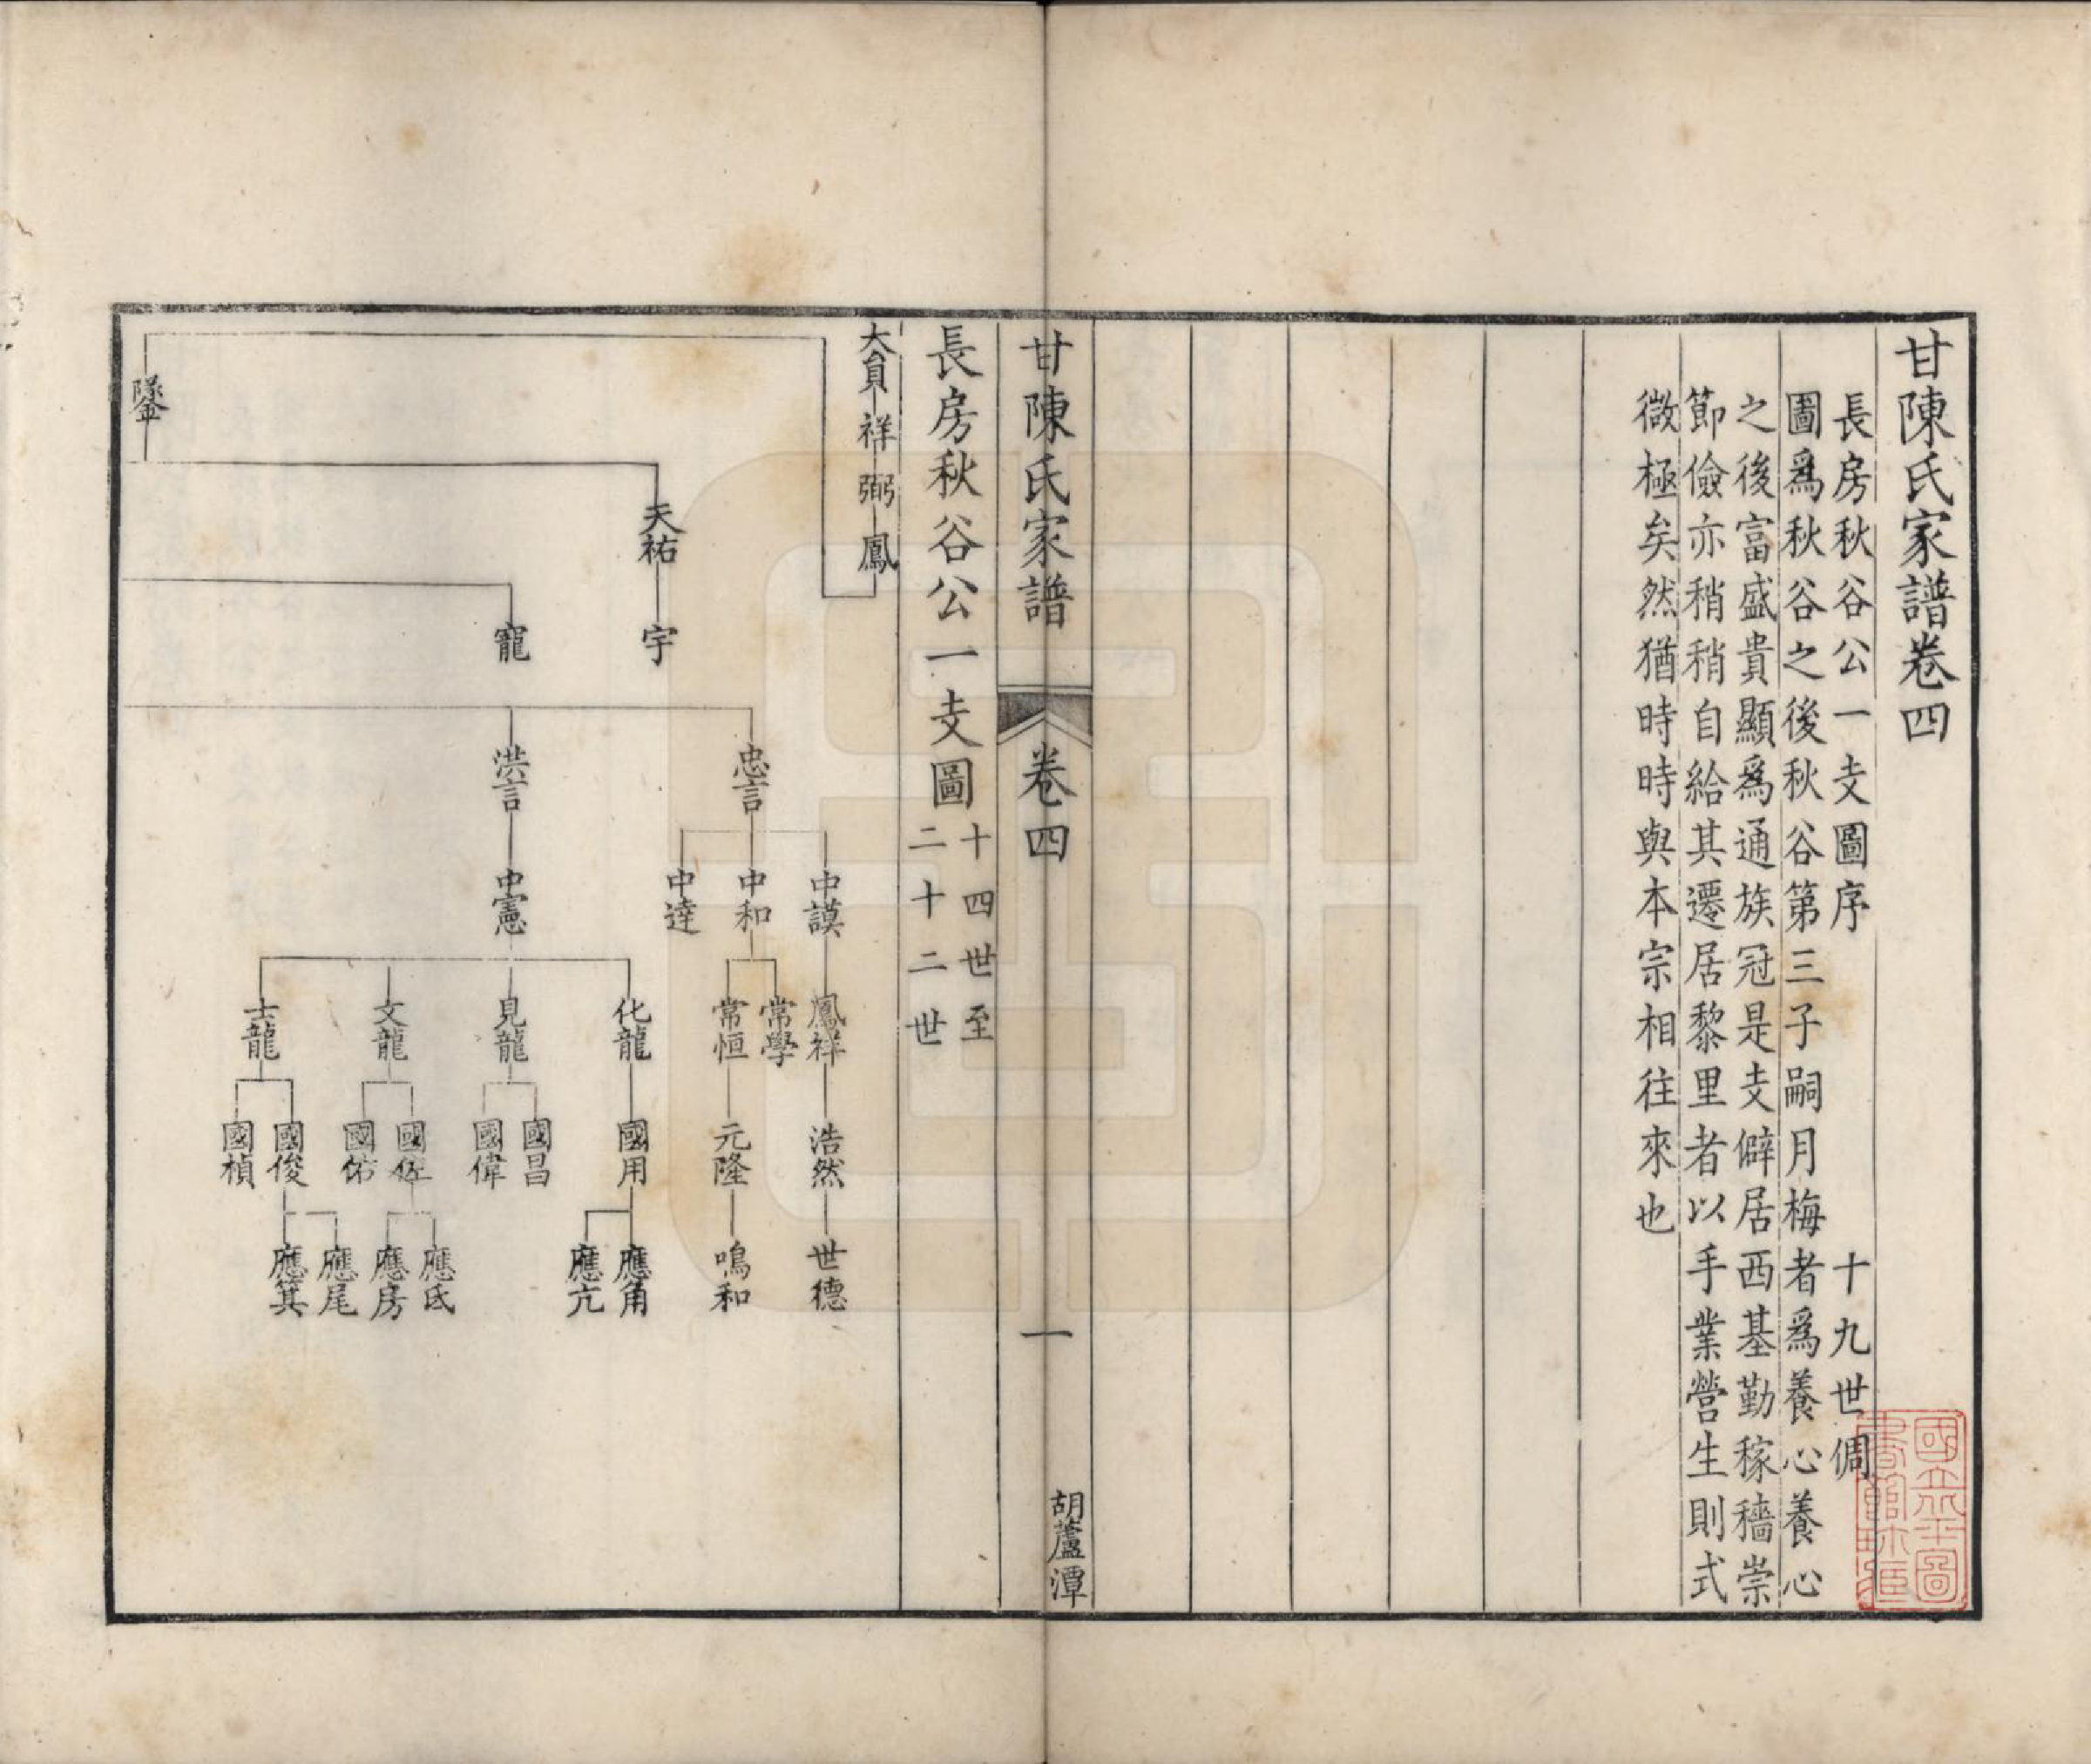 甘陳氏家譜卷四
長房秋谷公一支圖序　十九世倜
圖爲秋谷之後秋谷第三子嗣月梅者爲養心養心
之後富盛貴顯爲通族冠是支僻居西基勤稼穡崇
節儉亦稍稍自給其遷居黎里者以手業營生則式
微極矣然猶時時與本宗相往來也
甘陳氏家譜
卷四
一
胡蘆潭
長房秋谷公一支圖
十四世至
二十二世
大員
祥
弼
鳳
天祐
宇
寵
忠言
洪言
中謨
中和
中達
中憲
鳳祥
常學
常恒
化龍
見龍
文龍
士龍
浩然
元隆
國用
國昌
國偉
國佐
國佑
國俊
國楨
世德
鳴和
應角
應亢
應氐
應房
應尾
應箕
國立北平圖
書館珍藏